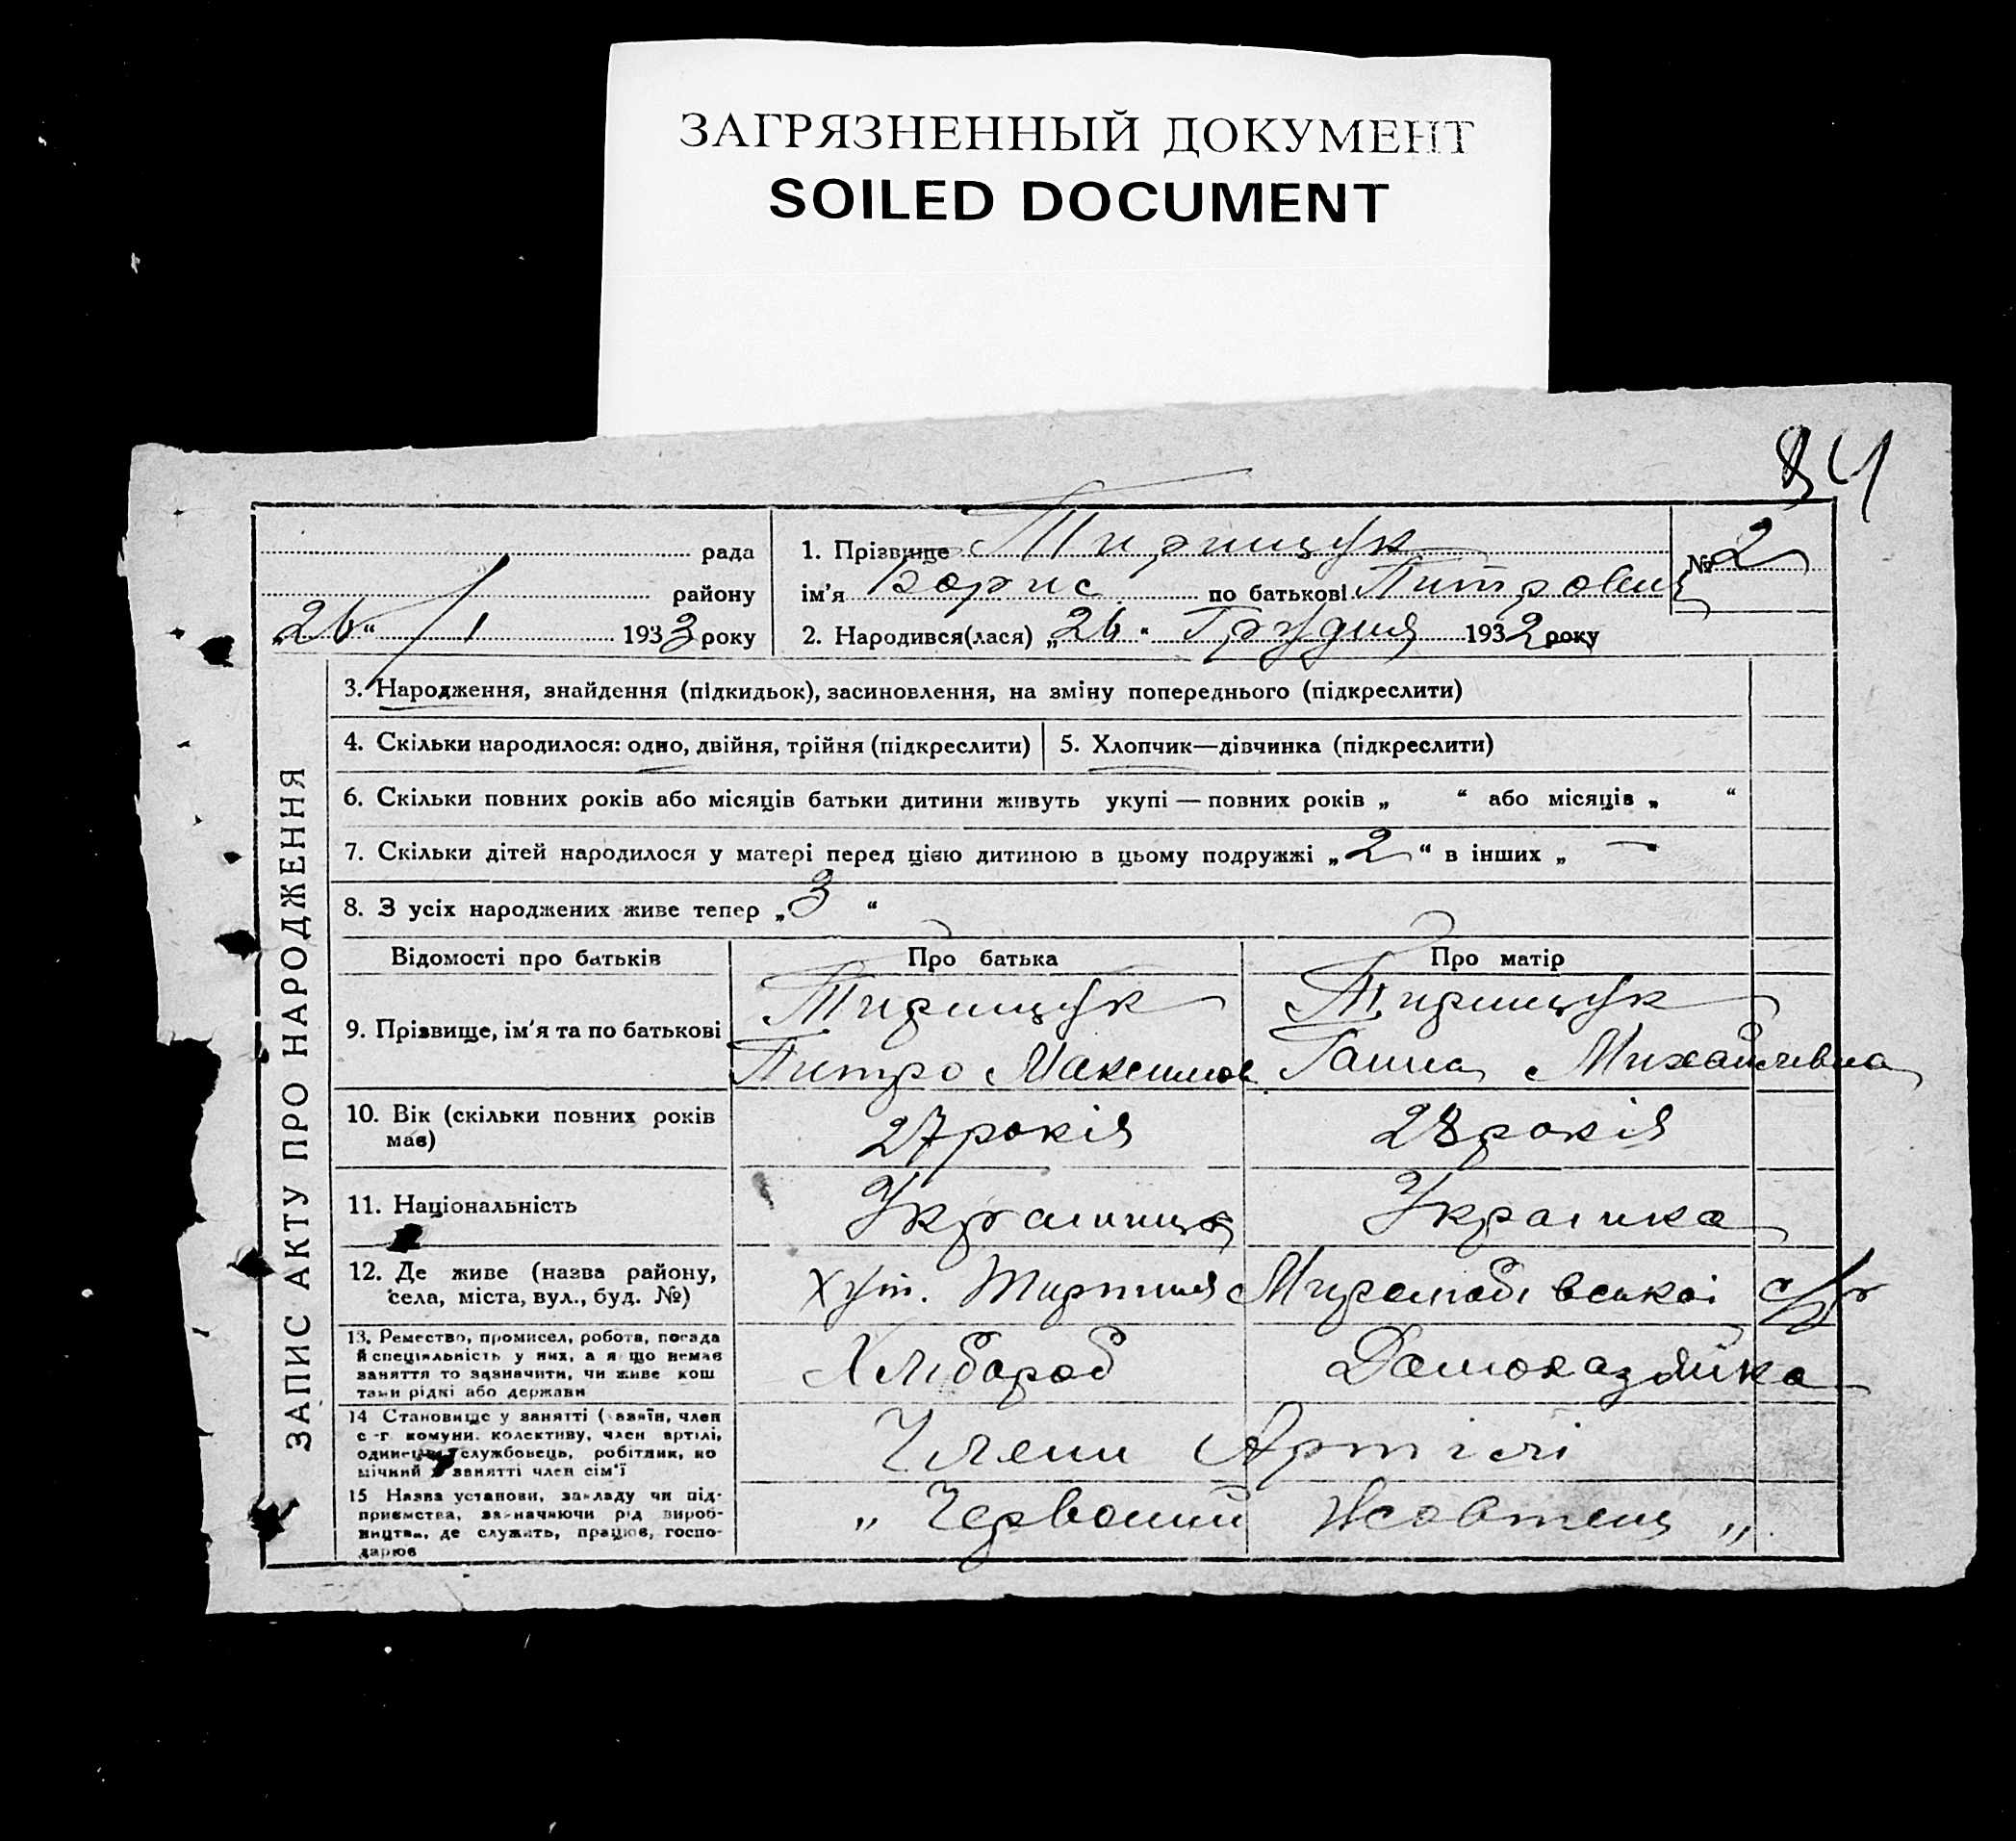 ЗАГРЯЗНЕННЫЙ ДОКУМЕНТ
SOILED DOCUMENT
84
рада
району
„26“ / 1 1933 року
1. Прізвище Тирищук
ім'я Борис по батькові Питрович
2. Народився(лася) „26“ Грудня 1932 року
№ 2
ЗАПИС АКТУ ПРО НАРОДЖЕННЯ
3. Народження, знайдення (підкидьок), засиновлення, на зміну попереднього (підкреслити)
4. Скільки народилося: одно, двійня, трійня (підкреслити)
5. Хлопчик—дівчинка (підкреслити)
6. Скільки повних років або місяців батьки дитини живуть укупі — повних років „ “ або місяців „ “
7. Скільки дітей народилося у матері перед цією дитиною в цьому подружжі „2“ в інших „ — “
8. З усіх народжених живе тепер „3“
Відомості про батьків Про батька Про матір
9. Прізвище, ім'я та по батькові
Тирищук
Питро Максимов
Тирищук
Ганна Михайлівна
10. Вік (скільки повних років
має)
27 років
28 років
11. Національність
Українець
Українка
12. Де живе (назва району,
села, міста, вул., буд. №)
Хут. с/р
13. Ремество, промисел, робота, посада
й спеціяльність у них, а якщо немає
заняття то зазначити, чи живе кош
тами рідні або держави
Хлібороб
Домохазяйка
14 Становище у занятті (хазяїн, член
с.-г. комуни. колективу, член артілі,
одинець, службовець, робітник, по
мічний у занятті член сім'ї
Члени Артілі
15 Назва установи, закладу чи під-
приємства, зазначаючи рід вироб-
ництва, де служить, працює, госпо-
дарює
„ Червоний Жовтень „